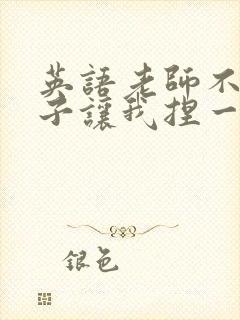 英語老師不
子讓我捏一
銀色